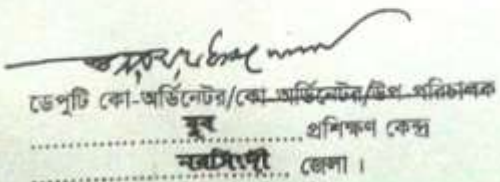 ডেপুটি কো-অর্ডিনেটর/কো-অর্ডিনেটর/উপ-পরিচালক
যুব প্রশিক্ষণ কেন্দ্র
নরসিংদী জেলা।